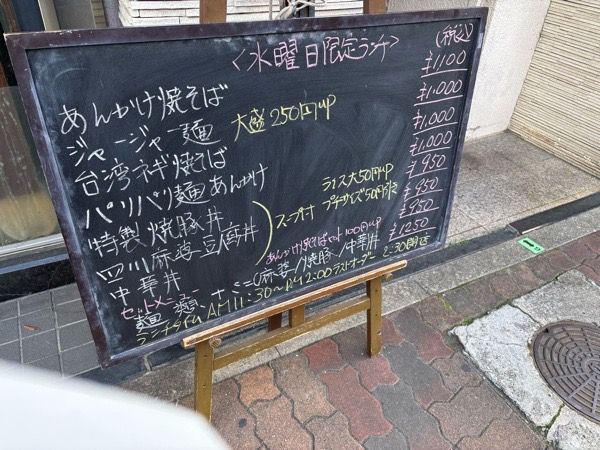 <水曜日限定ランチ> (税込)
あんかけ焼そば ¥1100
ジャージャー麺 大盛250円up ¥1,000
台湾ネギ焼そば ¥1,000
パリパリ麺あんかけ ¥1,000
特製焼豚丼 ¥950
四川麻婆豆腐丼 ¥950
中華丼 ¥950
スープ付 ライス大50円up
プチサイズ50円引き
セットメニュー あんかけ焼そばセット100円up ¥1250
麺類+ミニ(麻婆/焼豚/中華丼
ランチタイム AM11:30~PM2:00ラストオーダー 2:30閉店